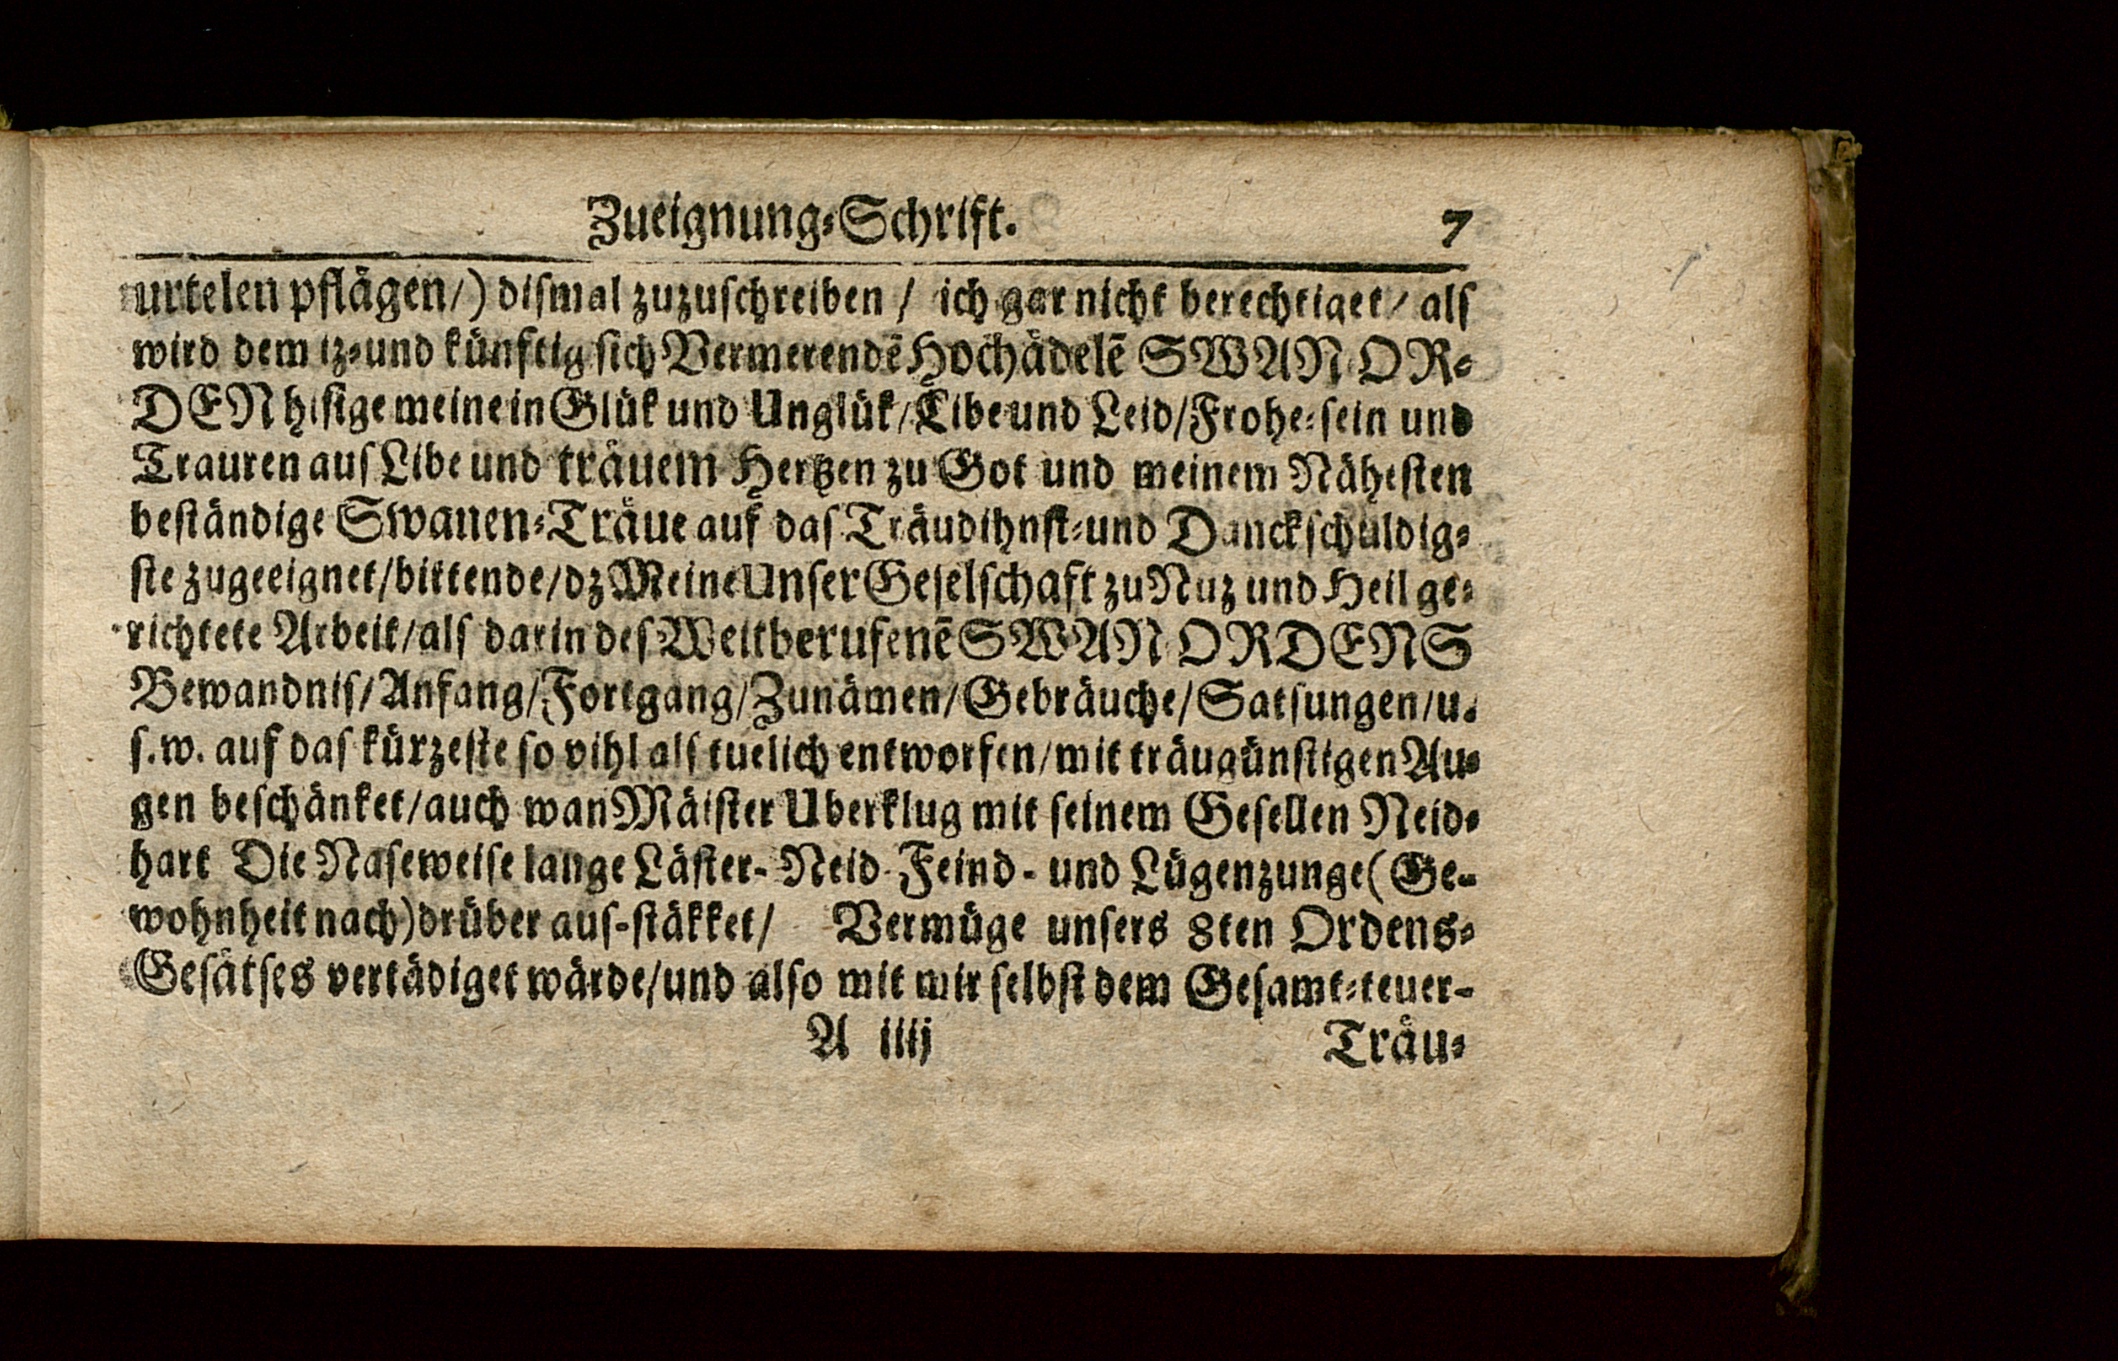 Zueignung-Schrift. 7
urtelen pflägen/) dismal zuzuschreiben / ich gar nicht berechtiget/ als
wird dem iz-und künftig sich Vermerendē Hochädelē SWAN OR-
DEN hisige meine in Glük und Unglük/Libe und Leid/Frohe-sein und
Trauren aus Libe und träuem Hertzen zu Got und meinem Nähesten
beständige Swanen-Träue auf das Träudihnst-und Danckschuldig-
ste zugeeignet/bittende/dz Meine Unser Geselschaft zu Nuz und Heil ge-
richtete Arbeit/als darin des Weitberufenē SWAN ORDENS
Bewandnis/Anfang/Fortgang/Zunämen/Gebräuche/Satsungen/u.
s.w. auf das kürzeste so vihl als tuelich entworfen/mit träugünstigen Au-
gen beschänket/auch wan Mäister Uberklug mit seinem Gesellen Neid-
hart Die Naseweise lange Läster- Neid- Feind- und Lügenzunge (Ge-
wohnheit nach) drüber aus-stäkket/ Vermüge unsers 8ten Ordens-
Gesätses vertädiget wärde/und also mit mir selbst dem Gesamt-teuer-
A iiij Träu-